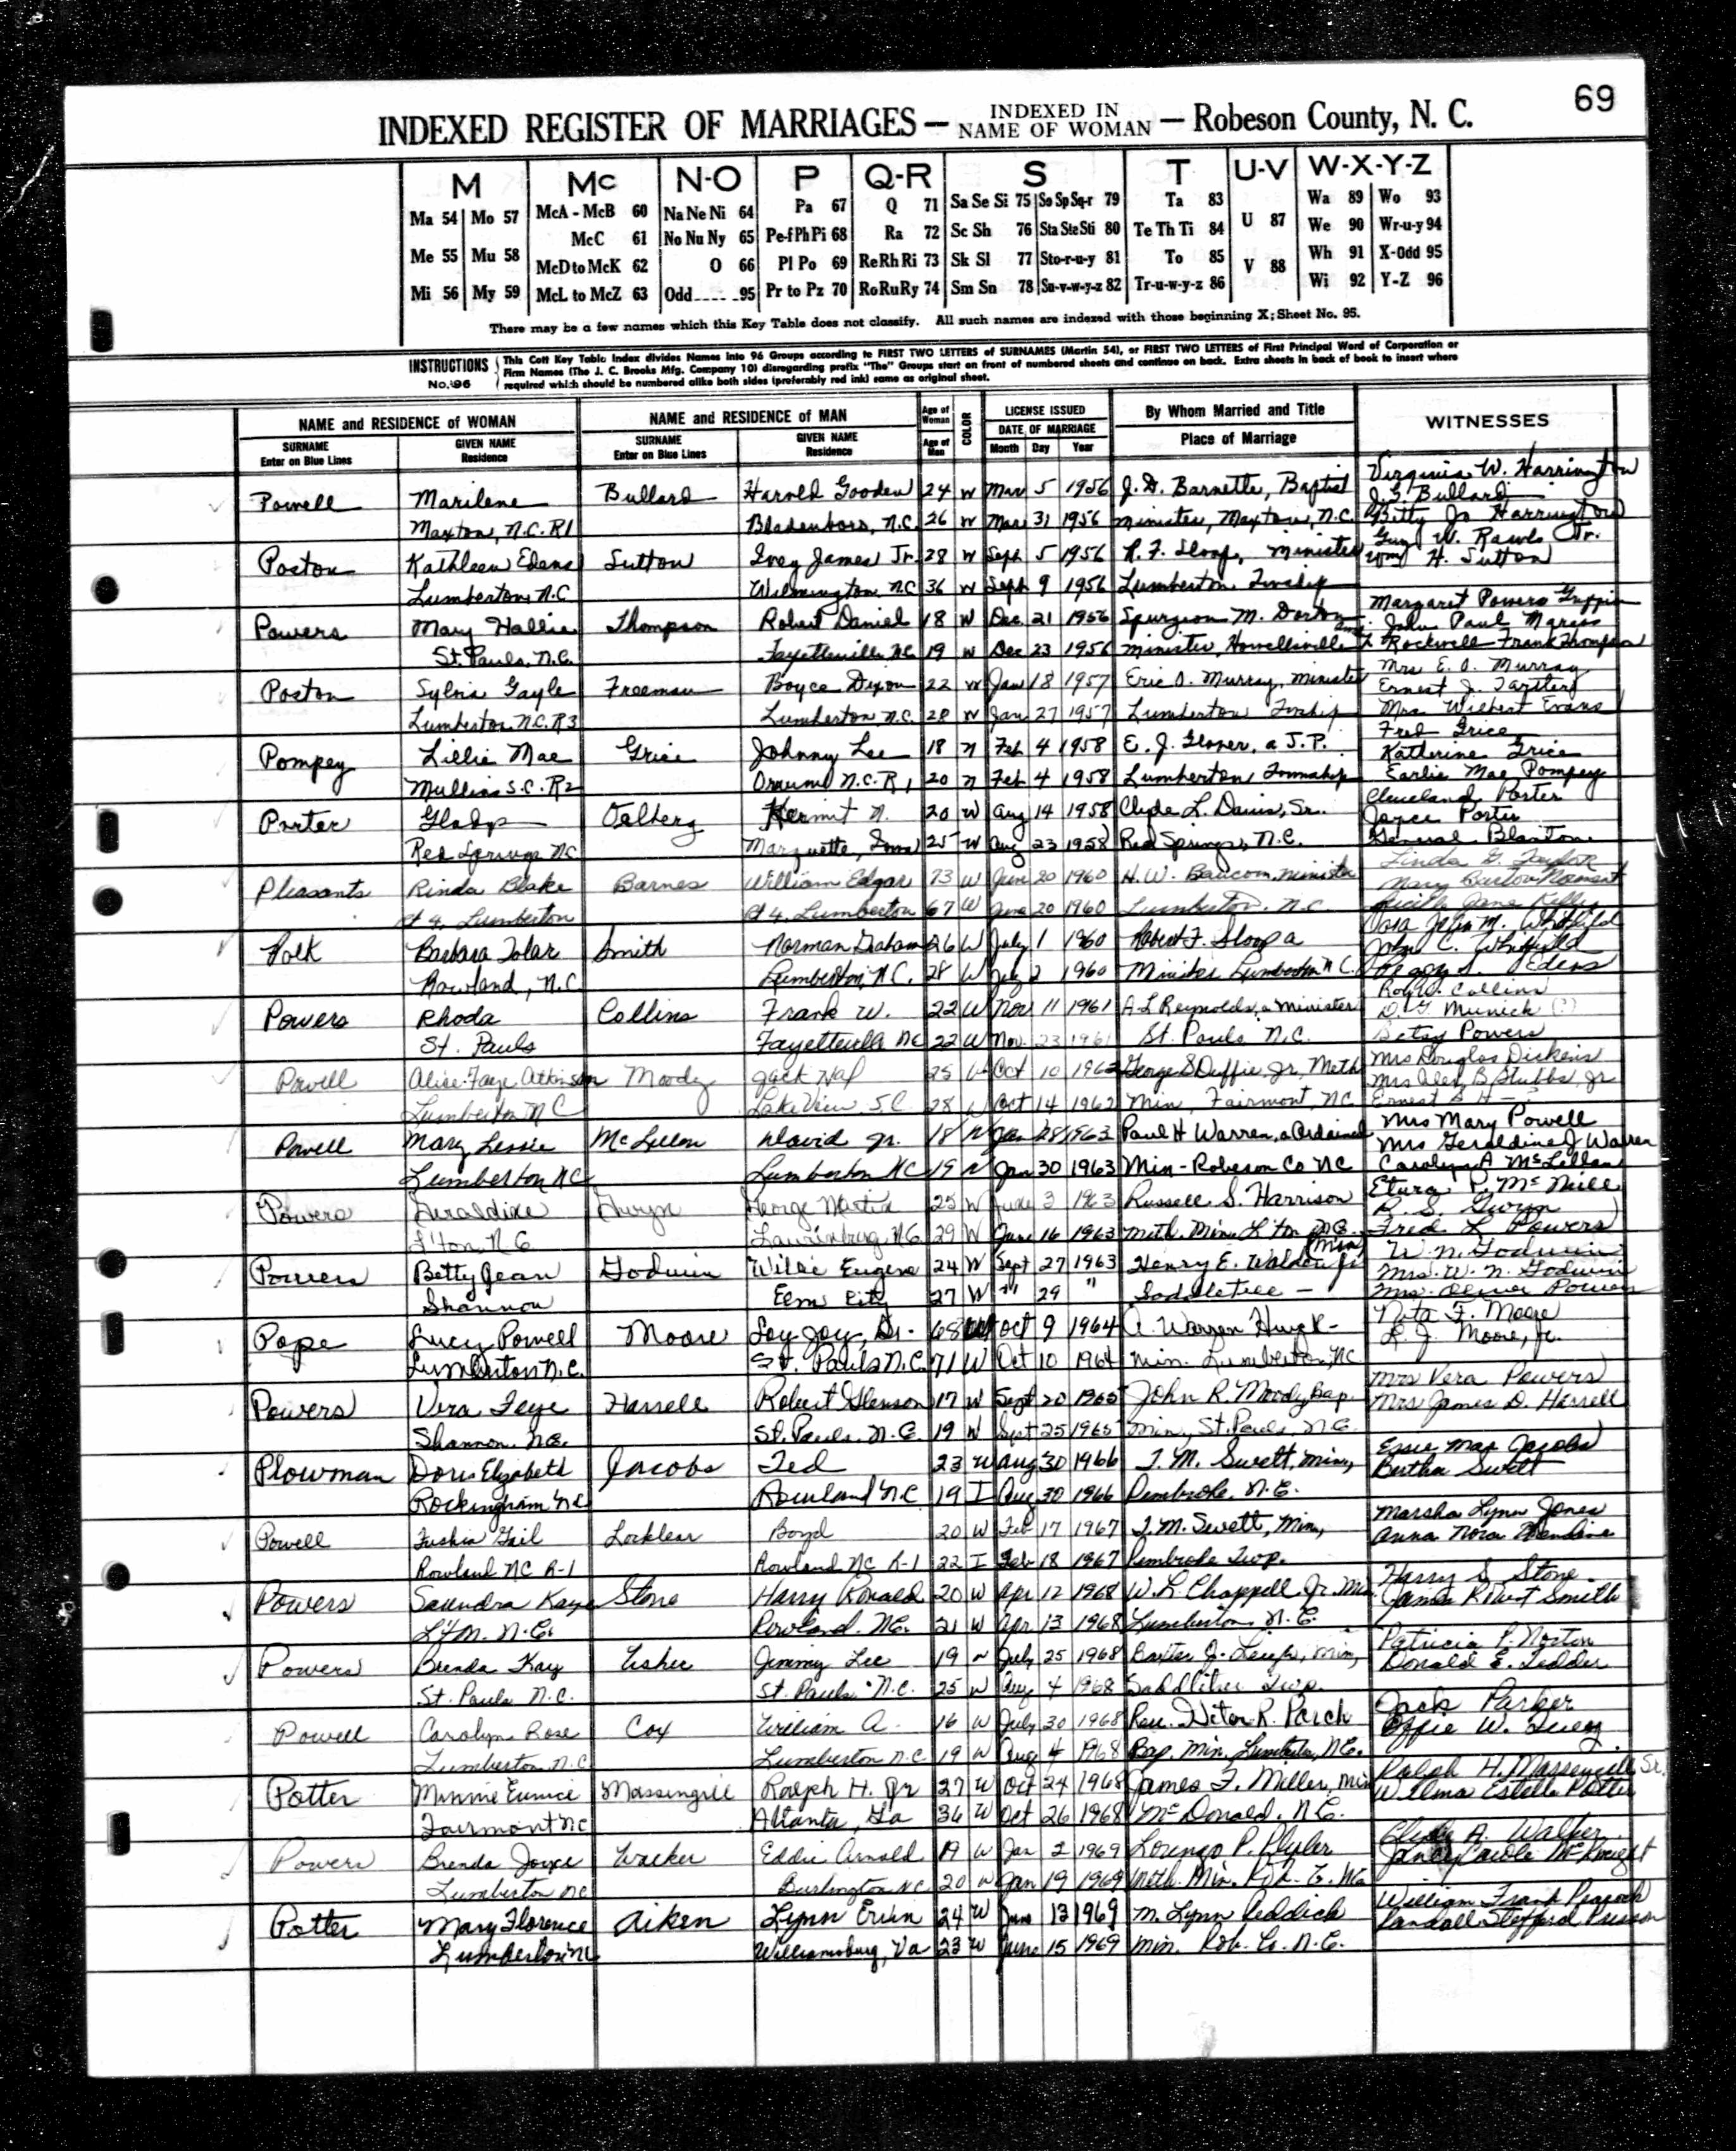 69
INDEXED REGISTER OF MARRIAGES — INDEXED IN NAME OF WOMAN — Robeson County, N. C.
M Mc N-O P Q-R S T U-V W-X-Y-Z
Ma 54 Mo 57 McA - McB 60 Na Ne Ni 64 Pa 67 Q 71 Sa Se Si 75 So Sp Sq-r 79 Ta 83 Wa 89 Wo 93
McC 61 No Nu Ny 65 Pe-f Ph Pi 68 Ra 72 Sc Sh 76 Sta Ste Sti 80 Te Th Ti 84 U 87 We 90 Wr-u-y 94
Me 55 Mu 58 McD to McK 62 O 66 Pl Po 69 Re Rh Ri 73 Sk Sl 77 Sto-r-u-y 81 To 85 V 88 Wh 91 X-Odd 95
Mi 56 My 59 McL to McZ 63 Odd 95 Pr to Pz 70 Ro Ru Ry 74 Sm Sn 78 Su-v-w-y-z 82 Tr-u-w-y-z 86 Wi 92 Y-Z 96
There may be a few names which this Key Table does not classify. All such names are indexed with those beginning X; Sheet No. 95.
INSTRUCTIONS No. 96
This Cott Key Table Index divides Names into 96 Groups according to FIRST TWO LETTERS of SURNAMES (Martin 54), or FIRST TWO LETTERS of First Principal Word of Corporation or
Firm Names (The J. C. Brooks Mfg. Company 10) disregarding prefix "The" Groups start on front of numbered sheets and continue on back. Extra sheets in back of book to insert where
required which should be numbered alike both sides (preferably red ink) same as original sheet.
NAME and RESIDENCE of WOMAN NAME and RESIDENCE of MAN Age of Woman COLOR LICENSE ISSUED By Whom Married and Title WITNESSES
SURNAME Enter on Blue Lines GIVEN NAME Residence SURNAME Enter on Blue Lines GIVEN NAME Residence Age of Man DATE OF MARRIAGE Month Day Year Place of Marriage
Virginia W. Harrington
Powell Marilene Bullard Harold Gooden 24 W Mar 5 1956 J. D. Barnette, Baptist J. S. Bullard
Maxton, N.C. R1 Bladenboro, N.C. 26 W Mar 31 1956 minister, Maxton, N.C. Betty Jo Harrington
Poston Kathleen Edens Sutton Ivey James Jr. 28 W Sept 5 1956 R. F. Sloop, Minister Guy W. Rawls Jr.
Wm H. Sutton
Lumberton, N.C. Wilmington, N.C. 36 W Sept 9 1956 Lumberton Twship
Powers Mary Hallie Thompson Robert Daniel 18 W Dec 21 1956 Spurgeon M. Margaret Powers Griffin
John Paul
St. Pauls, N.C. Fayetteville N.C. 19 W Dec 23 1956 minister, Howellsville Rockwell Frank Thompson
Poston Sylvia Gayle Freeman Boyce Dixon 22 W Jan 18 1957 Eric O. Murray, Minister Mrs E. O. Murray
Ernest J.
Lumberton N.C. R3 Lumberton N.C. 28 W Jan 27 1957 Lumberton Twship Mrs. Wilbert Evans
Pompey Lillie Mae Grice Johnny Lee 18 n Feb 4 1958 E. J. Glover, a J.P. Fred Grice
Katherine Grice
Mullins S.C. R2 Orrum N.C. R1 20 n Feb 4 1958 Lumberton Township Earlie Mae Pompey
Porter Gladys Oalberg Kermit N. 20 W Aug 14 1958 Clyde L. Davis, Sr. Cleveland Porter
Joyce Porter
Red Springs NC Marquette, Iowa 25 W Aug 23 1958 Red Springs, N.C. General Blanton
Pleasants Rinda Blake Barnes William Edgar 73 W June 20 1960 H. W. Baucom, minister Linda G. Taylor
Mary Barton Norment
Rt 4. Lumberton Rt 4. Lumberton 67 W June 20 1960 Lumberton, N.C. Lucille Jane Kelly
Polk Barbara Tolar Smith Norman Graham 26 W July 1 1960 Robert F. Sloop a John M. Whitfield
John C. Whitfield
Rowland, N.C. Lumberton, N.C. 28 W July 2 1960 Minister Lumberton N.C. Peggy S. Edens
Powers Rhoda Collins Frank W. 22 W Nov 11 1961 A L Reynolds, a minister Roy W. Collins
D. G. Munick (?)
St. Pauls Fayetteville NC 22 W Nov. 23 1961 St. Pauls N.C. Betsy Powers
Powell Alice Faye Atkinson Moody Jack Hal 25 W Oct 10 1962 George S Duffie, Jr, Meth Mrs Douglas Dickens
Mrs Alex B Stubbs, Jr
Lumberton NC Lake View S.C. 28 W Oct 14 1962 Min, Fairmont, NC Ernest
Powell Mary Lessie McLellan David Jr. 18 N Jan 28 1963 Paul H Warren, a Ordained Mrs Mary Powell
Mrs Geraldine J Warren
Lumberton NC Lumberton NC 19 N Jan 30 1963 Min - Robeson Co NC Carolyn A McLellan
Powers Geraldine Gwyn George Martin 25 W June 3 1963 Russell S. Harrison Etura P. McNeill
R. S. Gwyn
L'ton, N.C. Laurinburg, N.C. 29 W June 16 1963 Meth. Min. L'ton N.C. Fred L Powers
Powers Betty Jean Godwin Willie Eugene 24 W Sept 27 1963 Henry E. Walden Jr (Min) W. N. Godwin
Mrs. W. N. Godwin
Shannon Elm City 27 W " 29 " Saddletree - Mrs. Oliver Powers
Pope Lucy Powell Moore Loy Joy, Sr. 68 W Oct 9 1964 A. Warren Huyck - Nita F. Moore
L. J. Moore, Jr.
Lumberton N.C. St. Pauls N.C. 71 W Oct 10 1964 Min. Lumberton, NC
Powers Vera Faye Harrell Robert Glenson 17 W Sept 20 1965 John R. Moody, Bap. Mrs Vera Powers
Mrs James D. Harrell
Shannon, N.C. St. Pauls, N.C. 19 W Sept 25 1965 Min, St. Pauls, N.C.
Plowman Doris Elizabeth Jacobs Ted 23 W Aug 30 1966 T. M. Swett, min, Essie Mae Jacobs
Bertha Swett
Rockingham N.C. Rowland N.C 19 I Aug 30 1966 Pembroke, N.C.
Powell Fuskia Gail Locklear Boyd 20 W Feb 17 1967 T. M. Swett, Min, Marsha Lynn Jones
Anna Nora
Rowland NC R-1 Rowland NC R-1 22 I Feb 18 1967 Pembroke Twp.
Powers Saundra Kaye Stone Harry Ronald 20 W Apr 12 1968 W. L. Chappell Jr. Min. Harry S Stone
James Robert Smith
L't'n. N.C. Rowland, N.C. 21 W Apr 13 1968 Lumberton, N.C.
Powers Brenda Kay Fisher Jimmy Lee 19 W July 25 1968 Baxter J. min, Patricia P. Norton
Donald E. Tedder
St. Pauls N.C. St. Pauls N.C. 25 W Aug 4 1968 Saddletree Twp.
Powell Carolyn Rose Cox William A. 16 W July 30 1968 Rev. R. Parch Jack Parker
Effie W.
Lumberton N.C. Lumberton N.C 19 W Aug 4 1968 Bap. Min. Lumberton, N.C.
Potter Minnie Eunice Massingill Ralph H. Jr 27 W Oct 24 1968 James F. Miller, Min Ralph H. Massengill Sr.
Wilma Estelle Potter
Fairmont NC Atlanta, Ga 36 W Oct 26 1968 McDonald, N.C.
Powers Brenda Joyce Walker Eddie Arnold 19 W Jan 2 1969 Lorenzo P. Plyler Clyde A. Walker
Janey Carole McKnight
Lumberton NC Burlington NC 20 W Jan 19 1969 Meth. Min. Rob. C. NC
Potter Mary Florence Aiken Lynn Erwin 24 W June 13 1969 M. Lynn Reddick William Frank Peacock
Randall
Lumberton NC Williamsburg, Va 23 W June 15 1969 Min. Rob. Co. N.C.